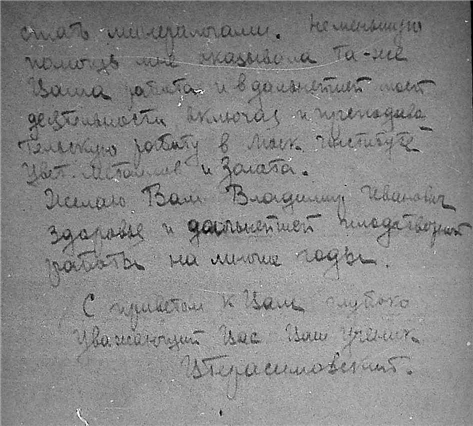 стать минералогами. Неменьшую
помощь мне оказывала та-же
Ваша работа и в дальнейшей моей
деятельности включая и преподава
тельскую работу в Моск. Институте
Цвет. Металлов и Золота.
Желаю Вам Владимир Иванович
здоровья и дальнейшей плодотворной
работы на многие годы.
С приветом к Вам глубоко
уважающий Вас Ваш ученик